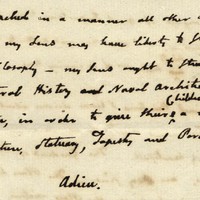 in a manner all other
my sons may have liberty to
losophy — my sons ought to
ral History and Naval Archite
Children
, in order to give their a
ture, Statuary, Tapestry and Por
Adieu.